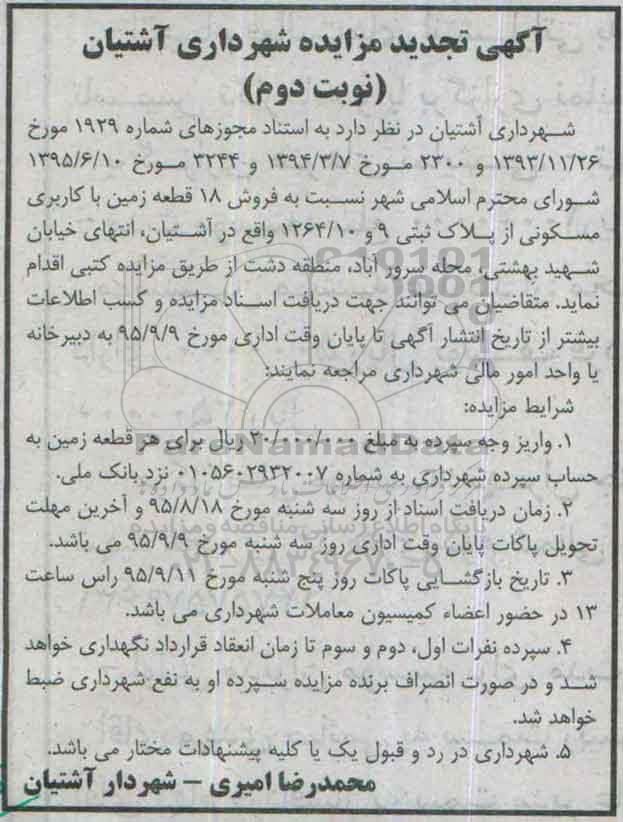 آگهی تجدید مزایده شهرداری آشتیان
(نوبت دوم)
شــهرداری آشتیان در نظر دارد به استناد مجوزهای شماره ۱۹۲۹ مورخ
۱۳۹۳/۱۱/۲۶ و ۲۳۰۰ مــورخ ۱۳۹۴/۳/۷ و ۳۲۴۴ مــورخ ۱۳۹۵/۶/۱۰
شــورای محترم اسلامی شهر نسـبت به فروش ۱۸ قطعه زمین با کاربری
مسـکونی از پــلاک ثبتی ۹ و ۱۲۶۴/۱۰ واقع در آشــتیان، انتهای خیابان
شــهید بهشتی، محله سرور آباد، منطقه دشت از طریق مزایده کتبی اقدام
نماید. متقاضیان می توانند جهت دریافت اسـناد مزایده و کسب اطلاعات
بیشتر از تاریخ انتشار آگهی تا پایان وقت اداری مورخ ۹۵/۹/۹ به دبیرخانه
یا واحد امور مالی شهرداری مراجعه نمایند:
شرایط مزایده:
۱. واریز وجه سپرده به مبلغ ۲۰/۰۰۰/۰۰۰ ریال برای هر قطعه زمین به
حساب سپرده شهرداری به شماره ۰۱۰۵۶۰۲۹۳۲۰۰۷ نزد بانک ملی.
۲. زمان دریافت اسناد از روز سه شنبه مورخ ۹۵/۸/۱۸ و آخرین مهلت
تحویل پاکات پایان وقت اداری روز سه شنبه مورخ ۹۵/۹/۹ می باشد.
۳. تاریخ بازگشــایی پاکات روز پنج شنبه مورخ ۹۵/۹/۱۱ راس ساعت
۱۳ در حضور اعضاء کمیسیون معاملات شهرداری می باشد.
۴. سپرده نفرات اول، دوم و سوم تا زمان انعقاد قرارداد نگهداری خواهد
شــد و در صورت انصراف برنده مزایده ســپرده او به نفع شهرداری ضبط
خواهد شد.
۵. شهرداری در رد و قبول یک یا کلیه پیشنهادات مختار می باشد.
محمدرضا امیری – شهردار آشتیان
ParsNamadData
پایگاه اطلاع رسانی مناقصه و مزایده